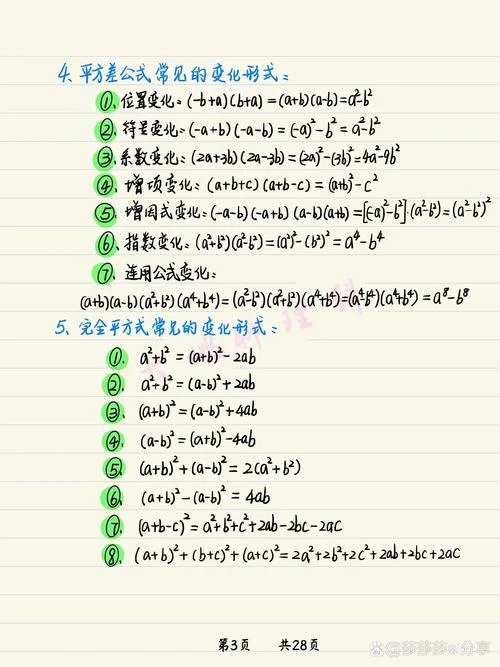 4、平方差公式常见的变化形式：
①、位置变化：(-b+a)(b+a)=(a+b)(a-b)=a²-b²
②、符号变化：(-a+b)(-a-b)=(-a)²-b²=a²-b²
③、系数变化：(2a+3b)(2a-3b)=(2a)²-(3b)²=4a²-9b²
④、增项变化：(a+b+c)(a+b-c)=(a+b)²-c²
⑤、增因式变化：(-a-b)(-a+b)(a-b)(a+b)=[(-a)²-b²]·(a²-b²)=(a²-b²)²
⑥、指数变化：(a²+b²)(a²-b²)=(a²)²-(b²)²=a⁴-b⁴
⑦、连用公式变化：
(a+b)(a-b)(a²+b²)(a⁴+b⁴)=(a²-b²)(a²+b²)(a⁴+b⁴)=(a⁴-b⁴)(a⁴+b⁴)=a⁸-b⁸
5、完全平方式常见的变化形式：
①、a²+b²=(a+b)²-2ab
②、a²+b²=(a-b)²+2ab
③、(a+b)²=(a-b)²+4ab
④、(a-b)²=(a+b)²-4ab
⑤、(a+b)²+(a-b)²=2(a²+b²)
⑥、(a+b)²-(a-b)²=4ab
⑦、(a+b-c)²=a²+b²+c²+2ab-2bc-2ac
⑧、(a+b)²+(b+c)²+(a+c)²=2a²+2b²+2c²+2ab+2bc+2ac
第3页 共28页
莎莎莎的分享